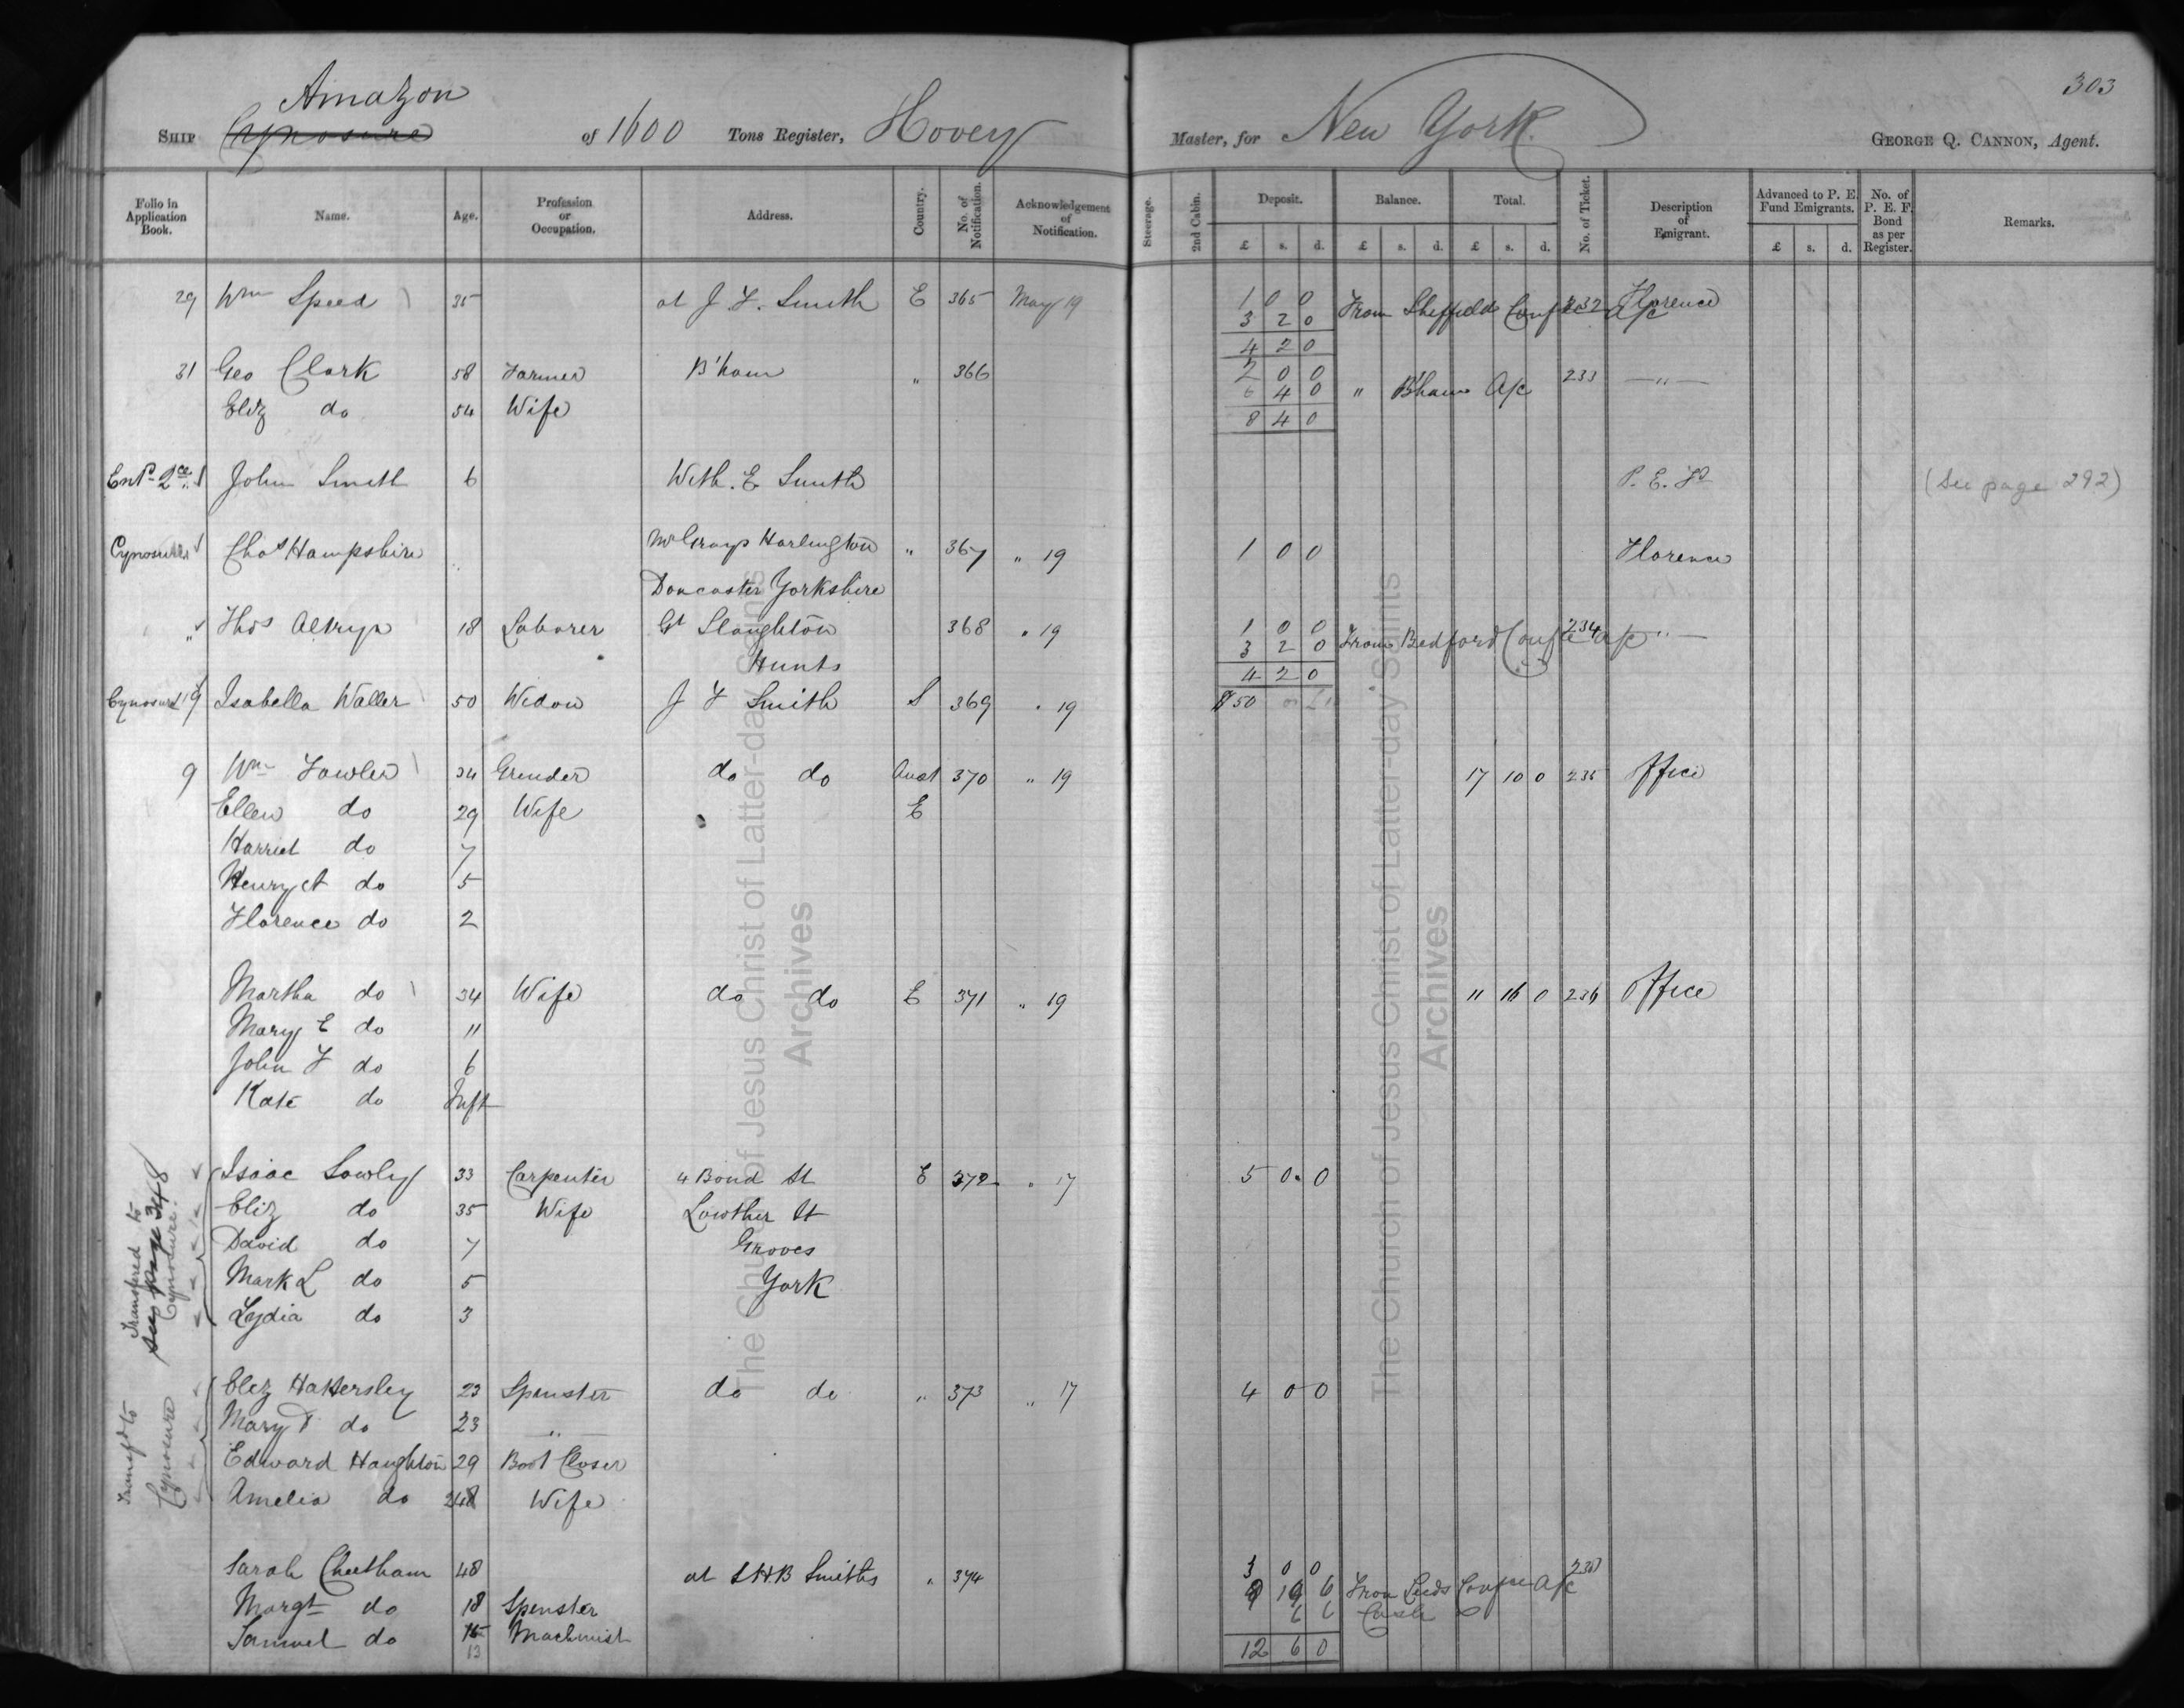 303
Amazon
SHIP Cynosure of 1600 Tons Register, Hovey Master, for New York. GEORGE Q. CANNON, Agent.
Folio in Application Book. Name. Age. Profession or Occupation. Address. Country. No. of Notification. Acknowledgement of Notification. Steerage. 2nd Cabin. Deposit. Balance. Total. No. of Ticket. Description of Emigrant. Advanced to P. E. Fund Emigrants. No. of P. E. F. Bond as per Register. Remarks.
£ s. d. £ s. d. £ s. d. £ s. d.
29 Wm Speed 35 at J. F. Smith E 365 May 19 1 0 0 From Sheffield Confce 232 Florence
3 2 0 A/c
4 2 0
31 Geo Clark 58 Farmer B'ham " 366 2 0 0 233 — " —
6 4 0 " B'ham A/c
Eliz do 54 Wife 8 4 0
Entd 2ce John Smith 6 With E Smith P. E. Fd (See page 292)
Cynosure Chas Hampshire Mr Grays Harlington " 367 " 19 1 0 0 Florence
Doncaster Yorkshire
" Thos Altryp 18 Laborer Gt Staughton 368 " 19 1 0 0 234 — " —
Hunts 3 2 0 From Bedford Confce A/c
4 2 0
Cynosure 19 Isabella Waller 50 Widow J F Smith S 369 " 19 $50
9 Wm Fowler 34 Grinder do do Aust 370 " 19 17 10 0 235 Office
Ellen do 29 Wife E
Harriet do 7
Henry A do 5
Florence do 2
Martha do 34 Wife do do E 371 " 19 11 16 0 236 Office
Mary E do 11
John F do 6
Kate do Inft
Transfered to
see page 348
Cynosure
Isaac Sowly 33 Carpenter 4 Bond St E 372 " 17 5 0 0
Eliz do 35 Wife Lowther St
David do 7 Groves
Mark L do 5 York
Lydia do 3
Transfd to
Cynosure
Eliz Hattersley 23 Spinster do do " 373 " 17 4 0 0
Mary T do 23 "
Edward Haughton 29 Boot Closer
Amelia do Wife
Sarah Cheetham 48 at S H B Smiths " 374 3 0 0
From Leeds Confce A/c
Margt do 18 Spinster 6 6 Cash
Samuel do 15 Machinist 12 6 0
13
The Church of Jesus Christ of Latter-day Saints
Archives
The Church of Jesus Christ of Latter-day Saints
Archives